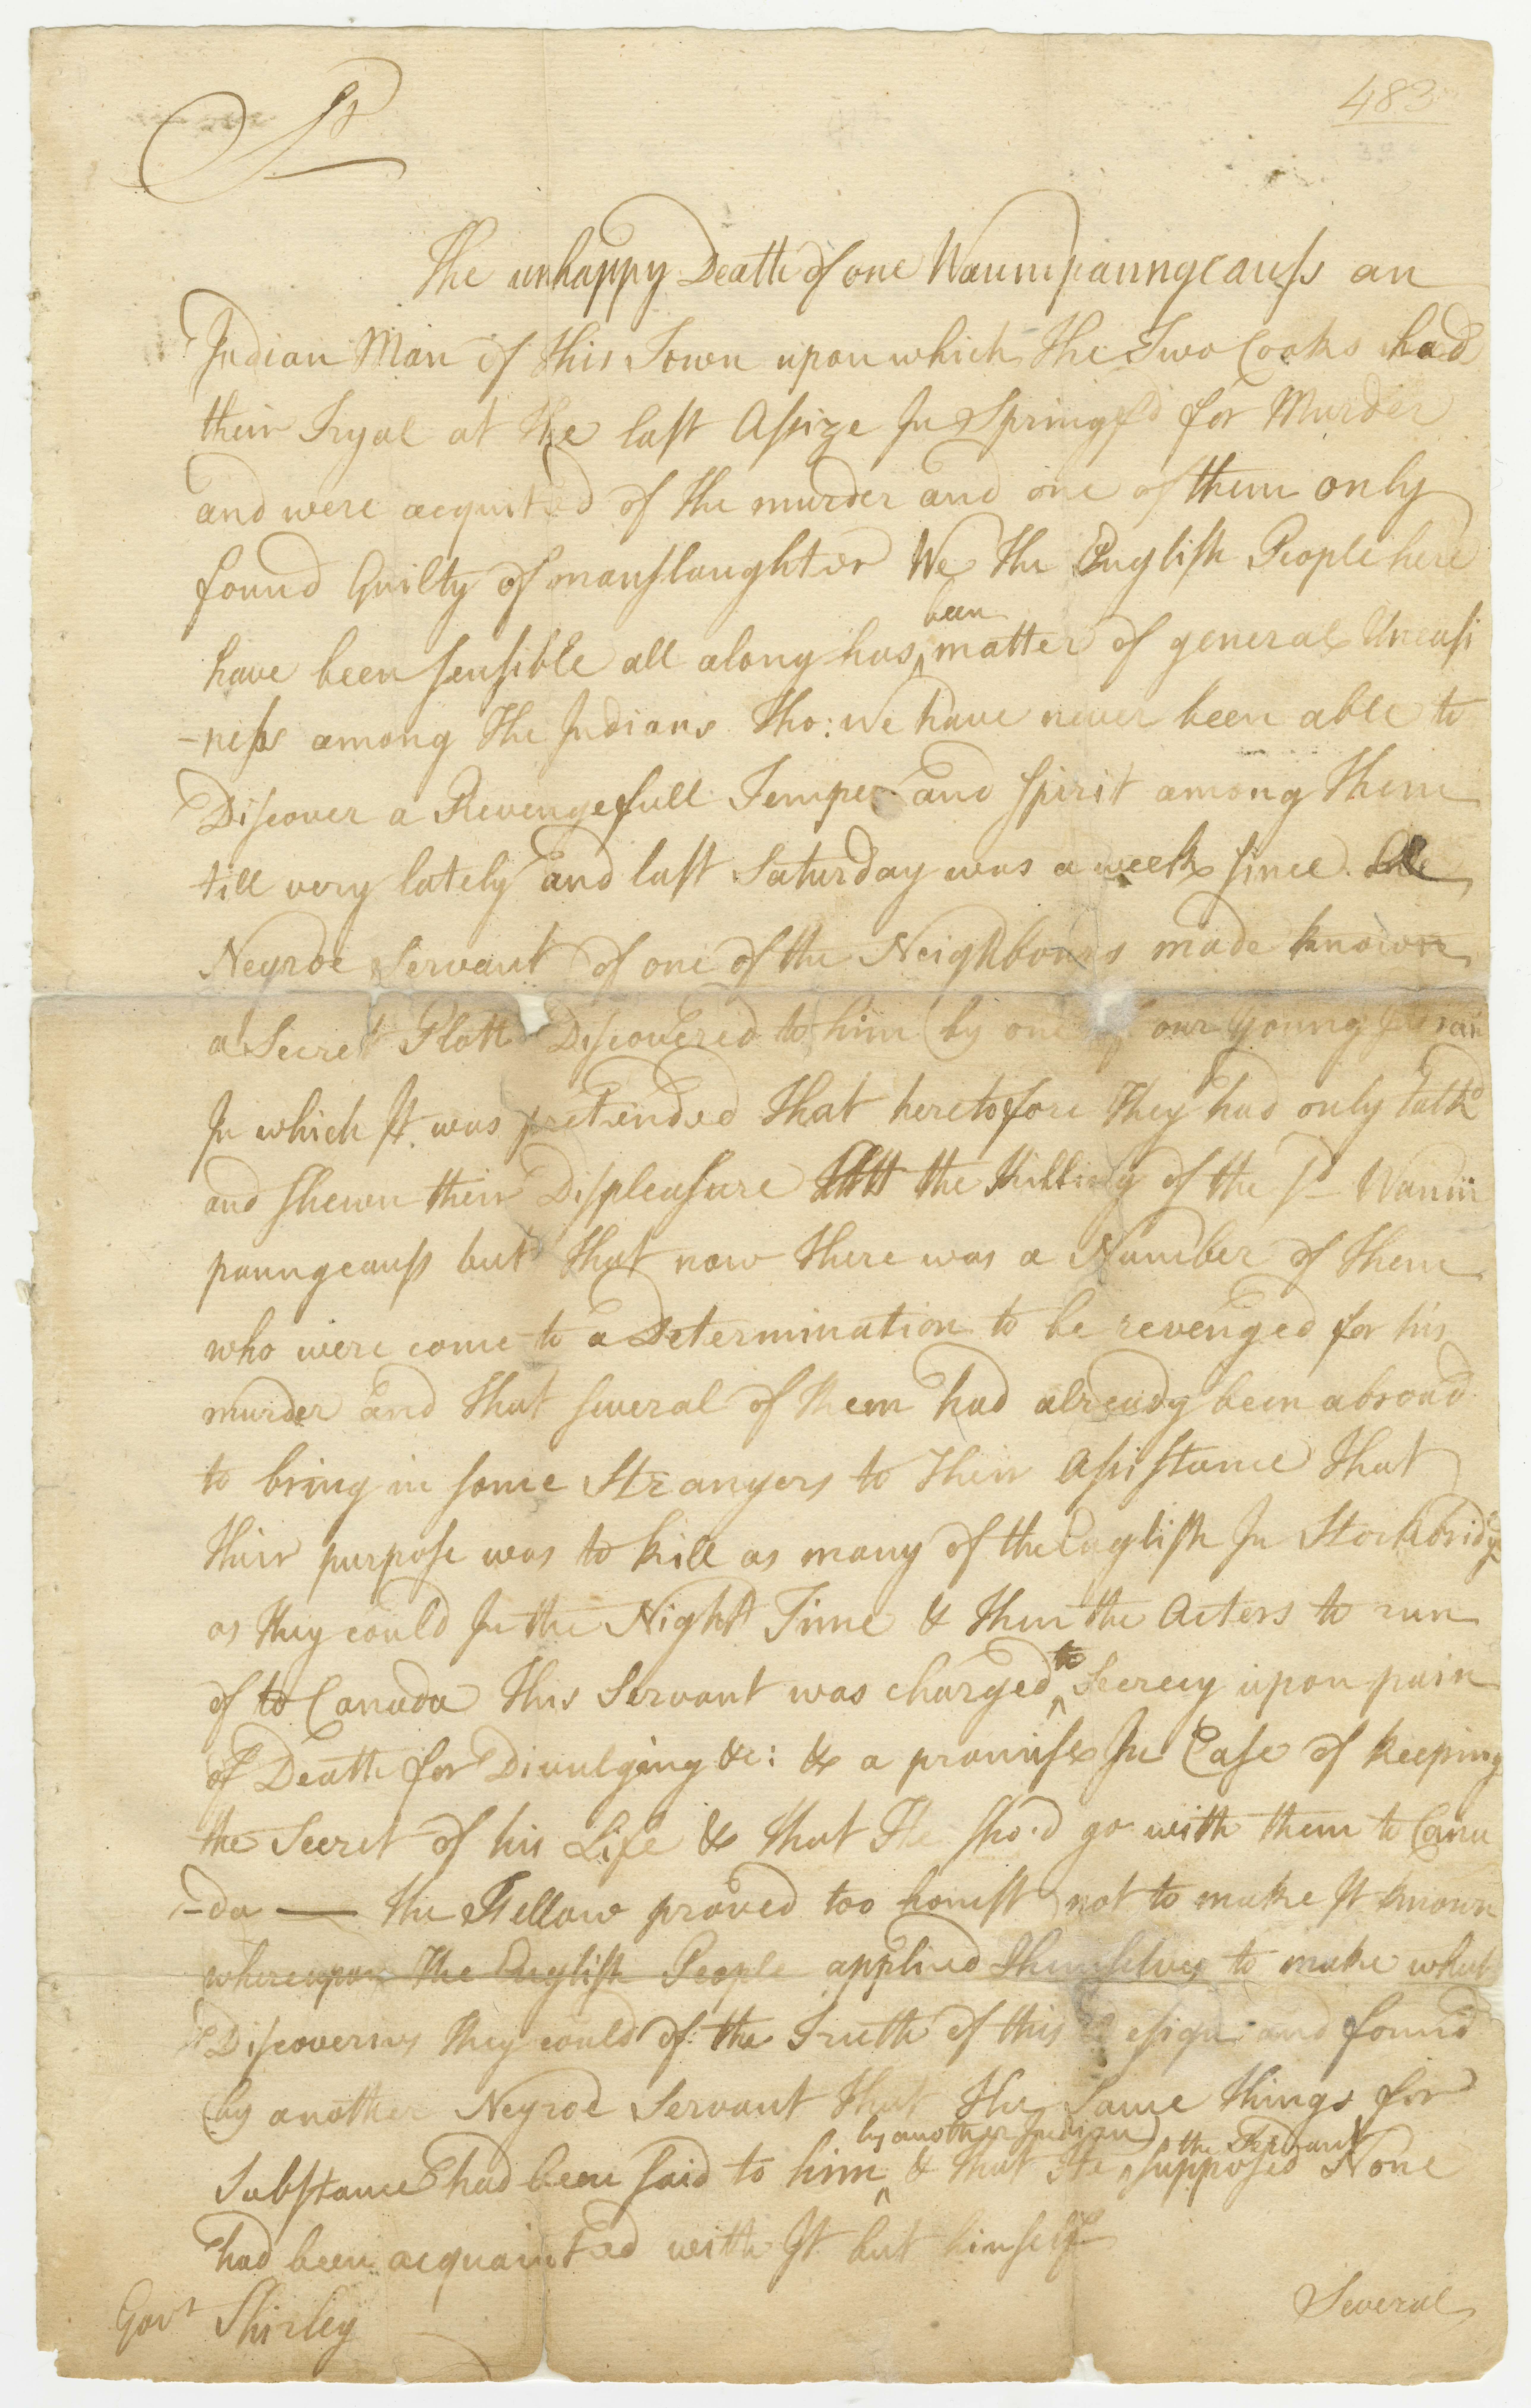 483
Sr
The unhappy Death of one Waumpaungcauss an
Indian Man of this Town upon which the Two Cooks had
their Tryal at the last Assize In Springfd for Murder
and were acquitted of the murder and one of them only
found Guilty of manslaughter We the English People here
have been sensible all along has been matter of general Uneasi
-ness among the Indians tho: we have never been able to
Discover a Revengefull Temper and spirit among them
till very lately and last Saturday was a week since
Negroe Servant of one of the Neighbours made known
a Secret Plott Discovered to him by one of our young Indians
In which It was pretended that heretofore they had only talkd
and shewn their Displeasure the Killing of the sd Waum
paungcauss but that now there was a Number of them
who were come to a Determination to be revenged for his
murder and that several of them had already been abroad
to bring in some Strangers to their Assistance that
their purpose was to kill as many of the English In Stockbridge
as they could In the Night Time & then the Acters to run
of to Canada this Servant was charged to Secrecy upon pain
of Death for Divulging &c: & a promise In Case of keeping
the Secret of his Life & that He sho.d go with them to Cana
-da — the Fellow proved too honest not to make It known
whereupon the English People applied themselves to make what
Discoveries they could of the Truth of this Design and found
by another Negroe Servant that the same things for
Substance had been said to him by another Indian & that He the Servant supposed None
had been acquainted with It but himself
Several
Govr Shirley